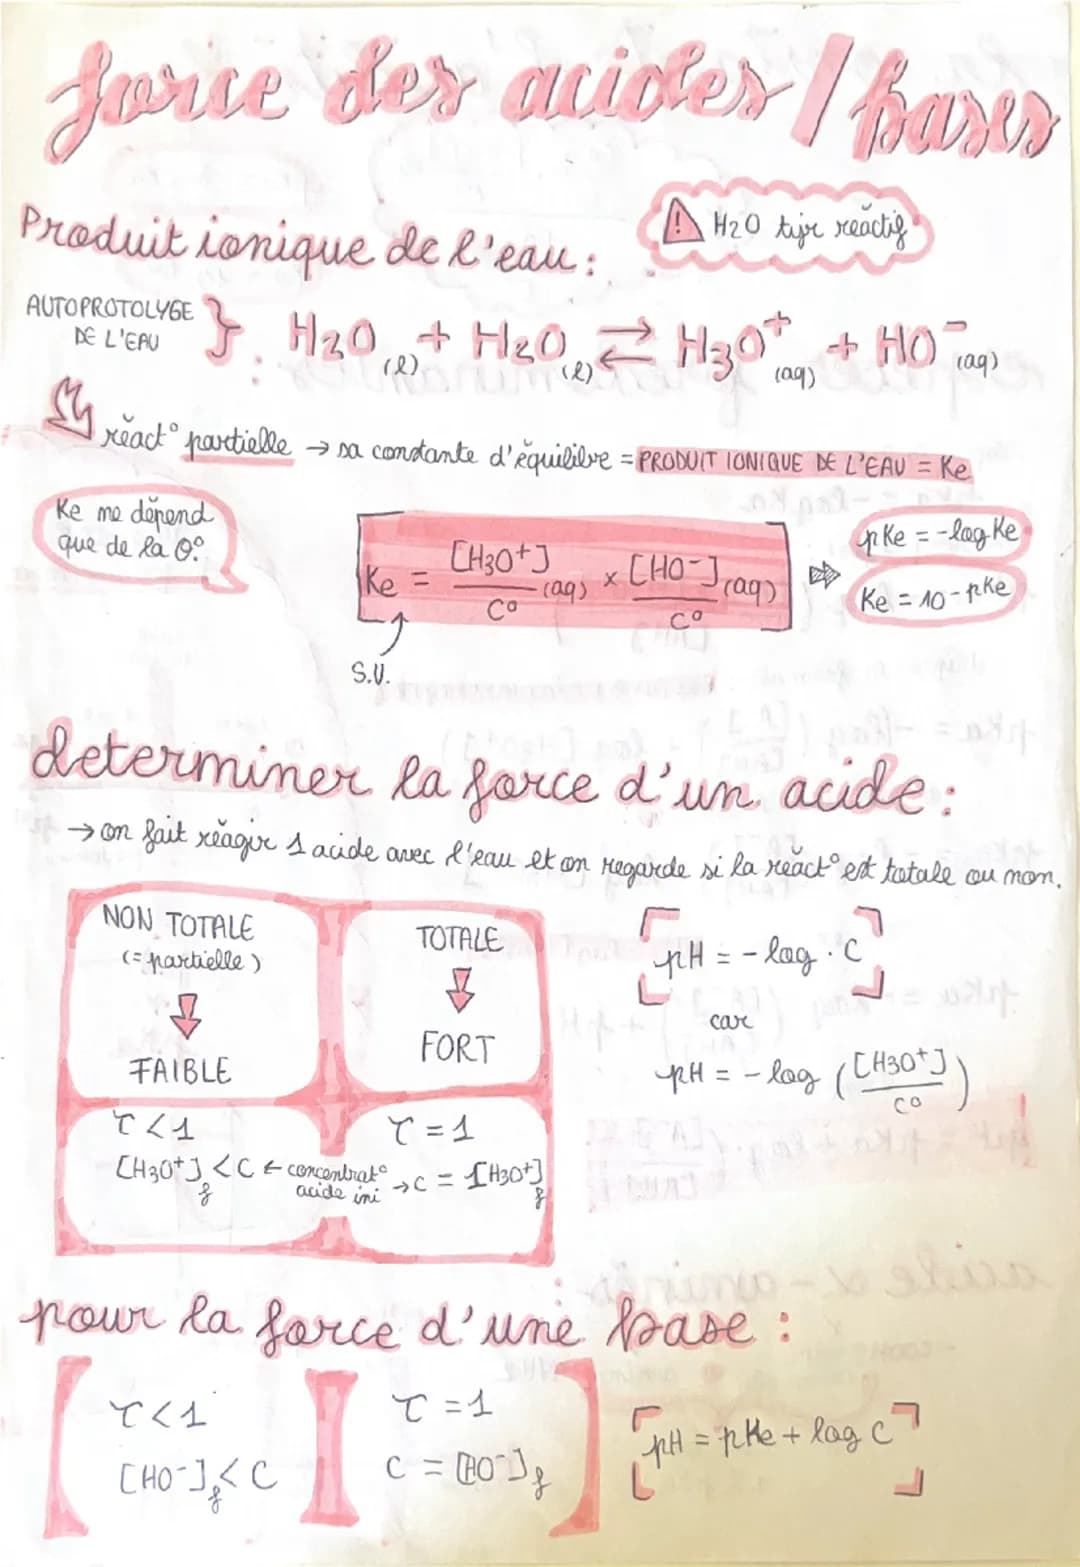 force des acides / bases
⚠ H2O tjr réactif
Produit ionique de l'eau :
AUTOPROTOLYGE DE L'EAU } : H2O (l) + H2O (l) ⇄ H3O+ (aq) + HO- (aq)
réact° partielle → sa constante d'équilibre = PRODUIT IONIQUE DE L'EAU = Ke
Ke ne dépend
que de la θ°
Ke = [H3O+] (aq) / C° × [HO-] (aq) / C°
⇨ pKe = -log Ke
Ke = 10 - pKe
S.U.
determiner la force d'un acide :
→ on fait réagir 1 acide avec l'eau et on regarde si la réact° est totale ou non.
NON TOTALE
(= partielle)
⇩
FAIBLE
TOTALE
⇩
FORT
τ < 1
[H3O+]f < C ← concentrat°
acide ini
τ = 1
→ C = [H3O+]f
pH = - log . C
car
pH = - log ([H3O+] / C°)
pour la force d'une base :
τ < 1
[HO-]f < C
τ = 1
C = [HO-]f
pH = pKe + log C